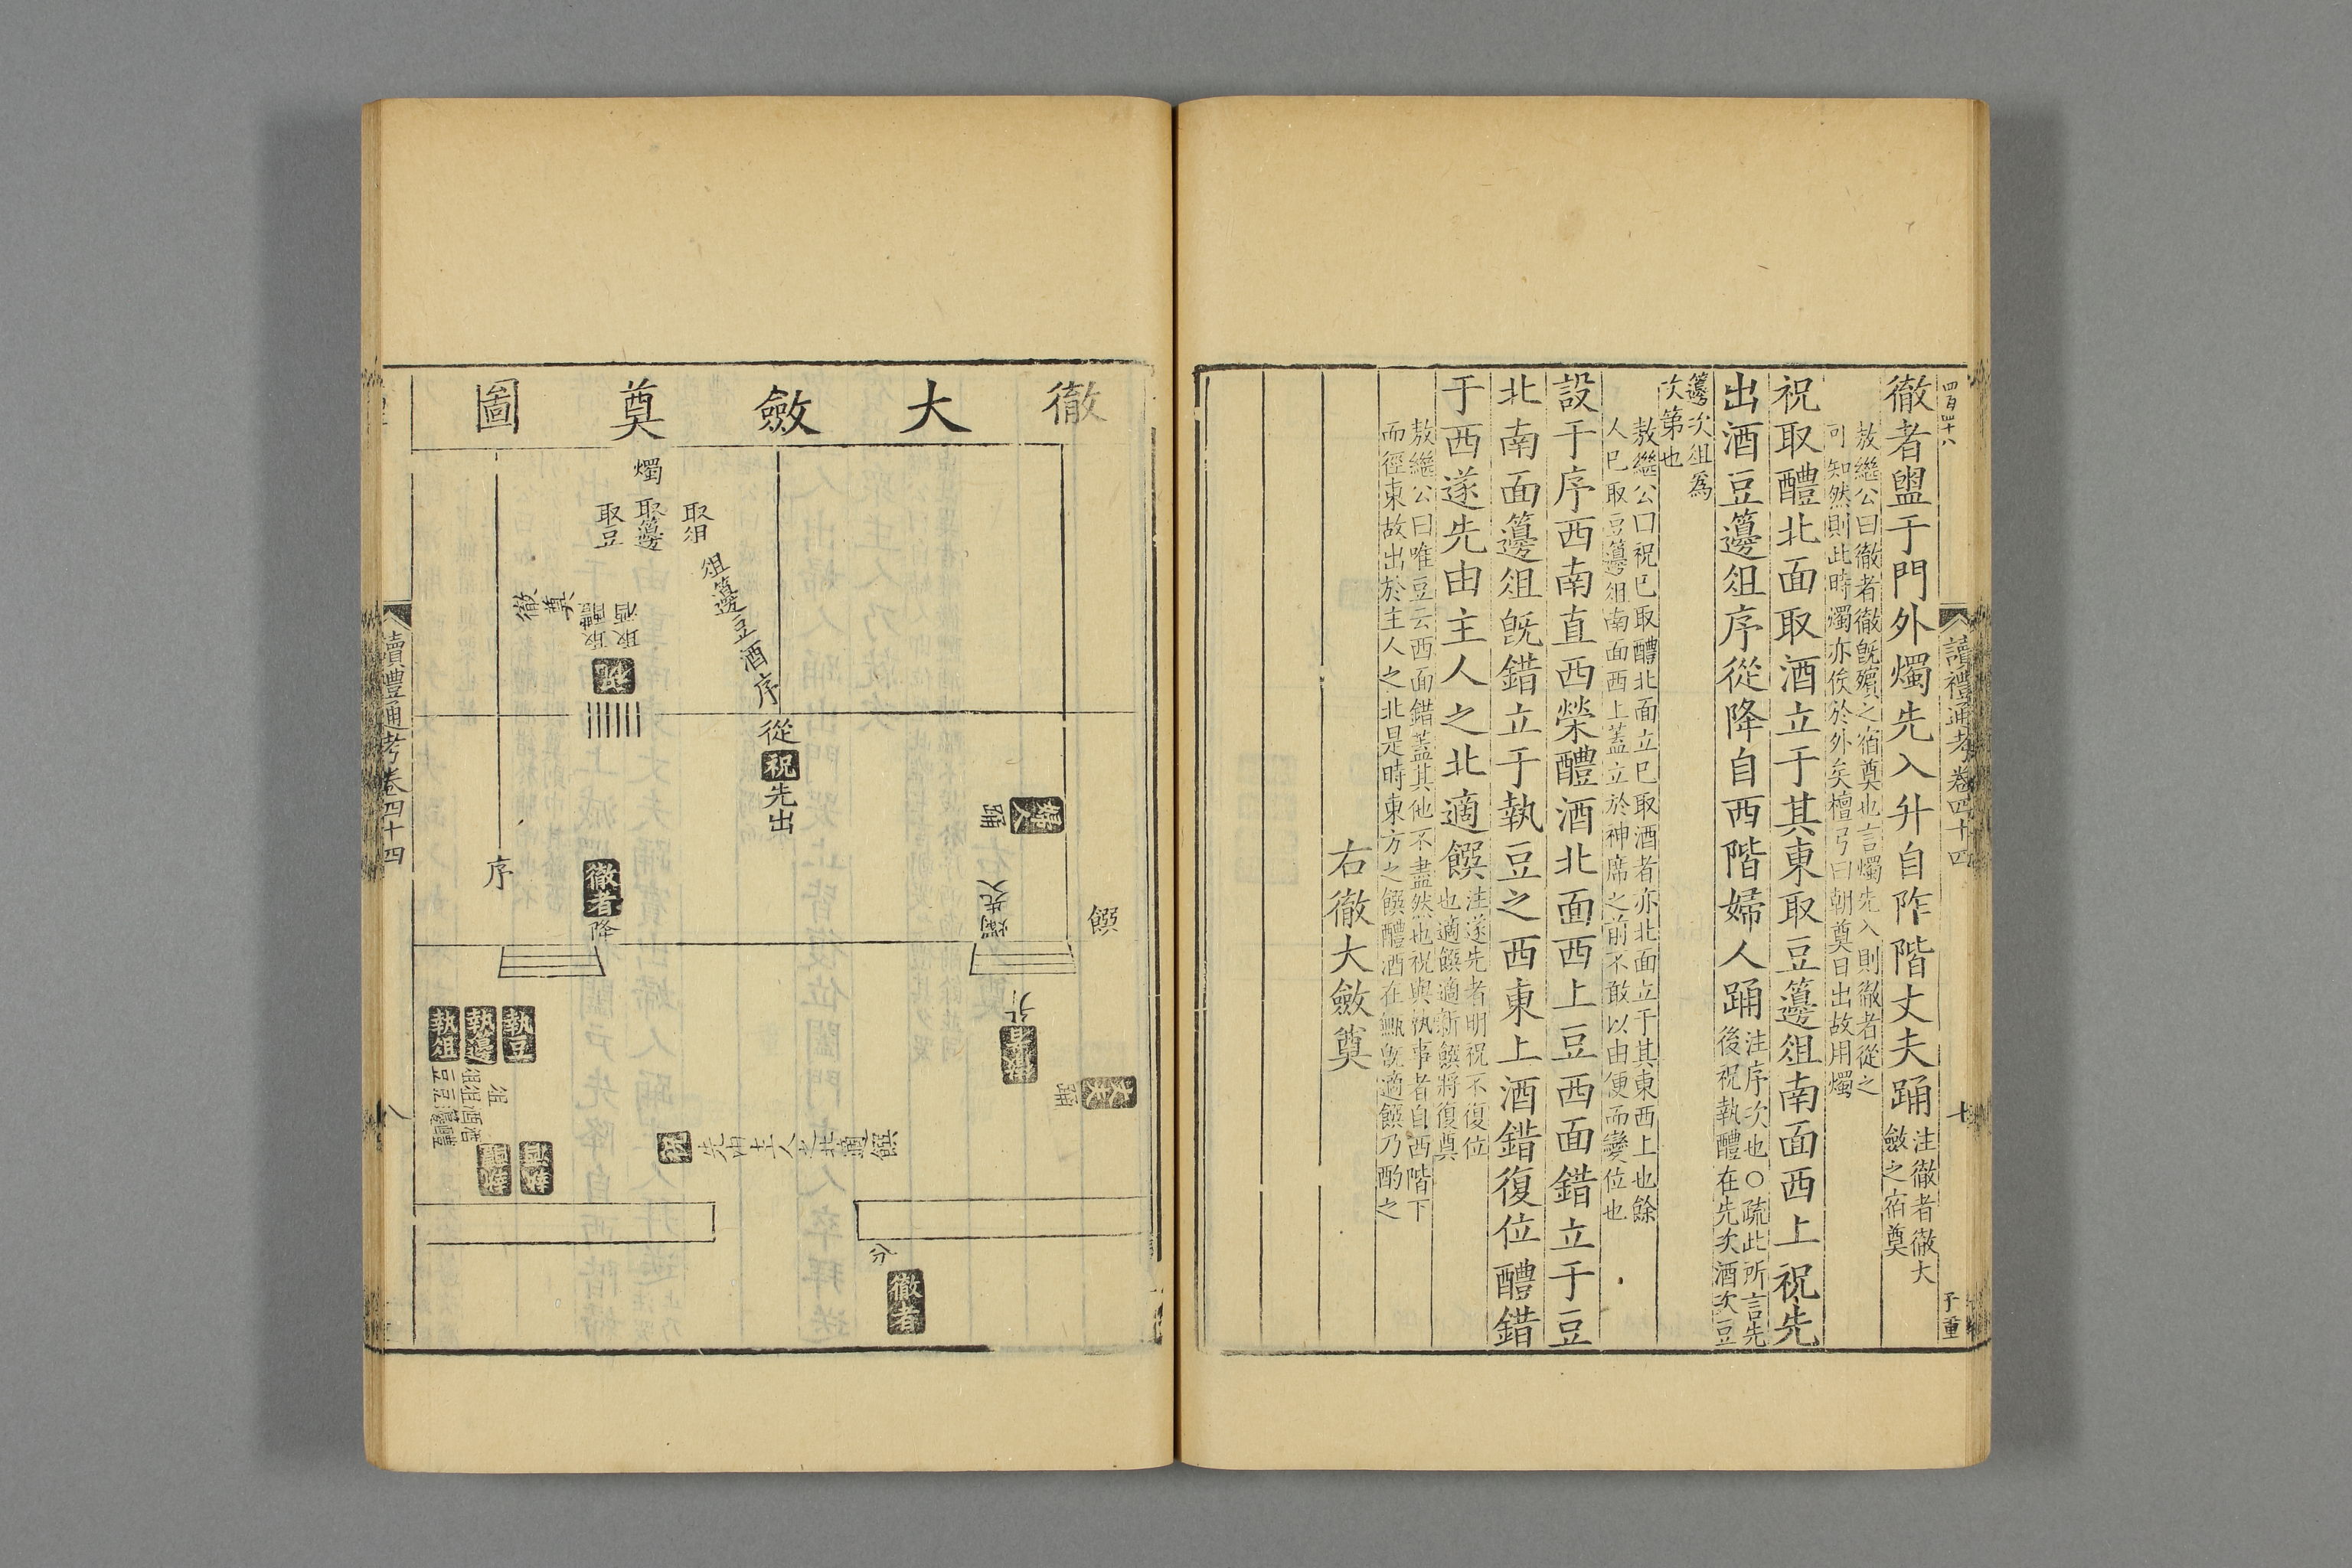 四百四十八
讀禮通考卷四十四
七
徹者盥于門外燭先入升自阼階丈夫踊注徹者徹大
斂之宿奠
敖繼公曰徹者徹旣殯之宿奠也言燭先入則徹者從之
可知然則此時燭亦俟於外矣檀弓曰朝奠日出故用燭
祝取醴北面取酒立于其東取豆籩俎南面西上祝先
出酒豆籩俎序從降自西階婦人踊注序次也○疏此所言先
後祝執醴在先次酒次豆
籩次俎爲
次第也
敖繼公曰祝已取醴北面立已取酒者亦北面立于其東西上也餘
人已取豆籩俎南面西上蓋立於神席之前不敢以由便而變位也
設于序西南直西榮醴酒北面西上豆西面錯立于豆
北南面籩俎旣錯立于執豆之西東上酒錯復位醴錯
于西遂先由主人之北適饌注遂先者明祝不復位
也適饌適新饌將復奠
敖繼公曰唯豆云西面錯蓋其他不盡然也祝與執事者自西階下
而徑東故出於主人之北是時東方之饌醴酒在甒旣適饌乃酌之
右徹大斂奠
徹大斂奠圖
燭
取俎
取籩
取豆
俎籩豆酒序
從
祝
先出
徹奠
取酒
取醴
祝
婦人
踊
燭先入
饌
序
徹者
降
升
丈夫
踊
執豆
執籩
執俎
祝
先由主人之北適饌
徹者
讀禮通考卷四十四
八